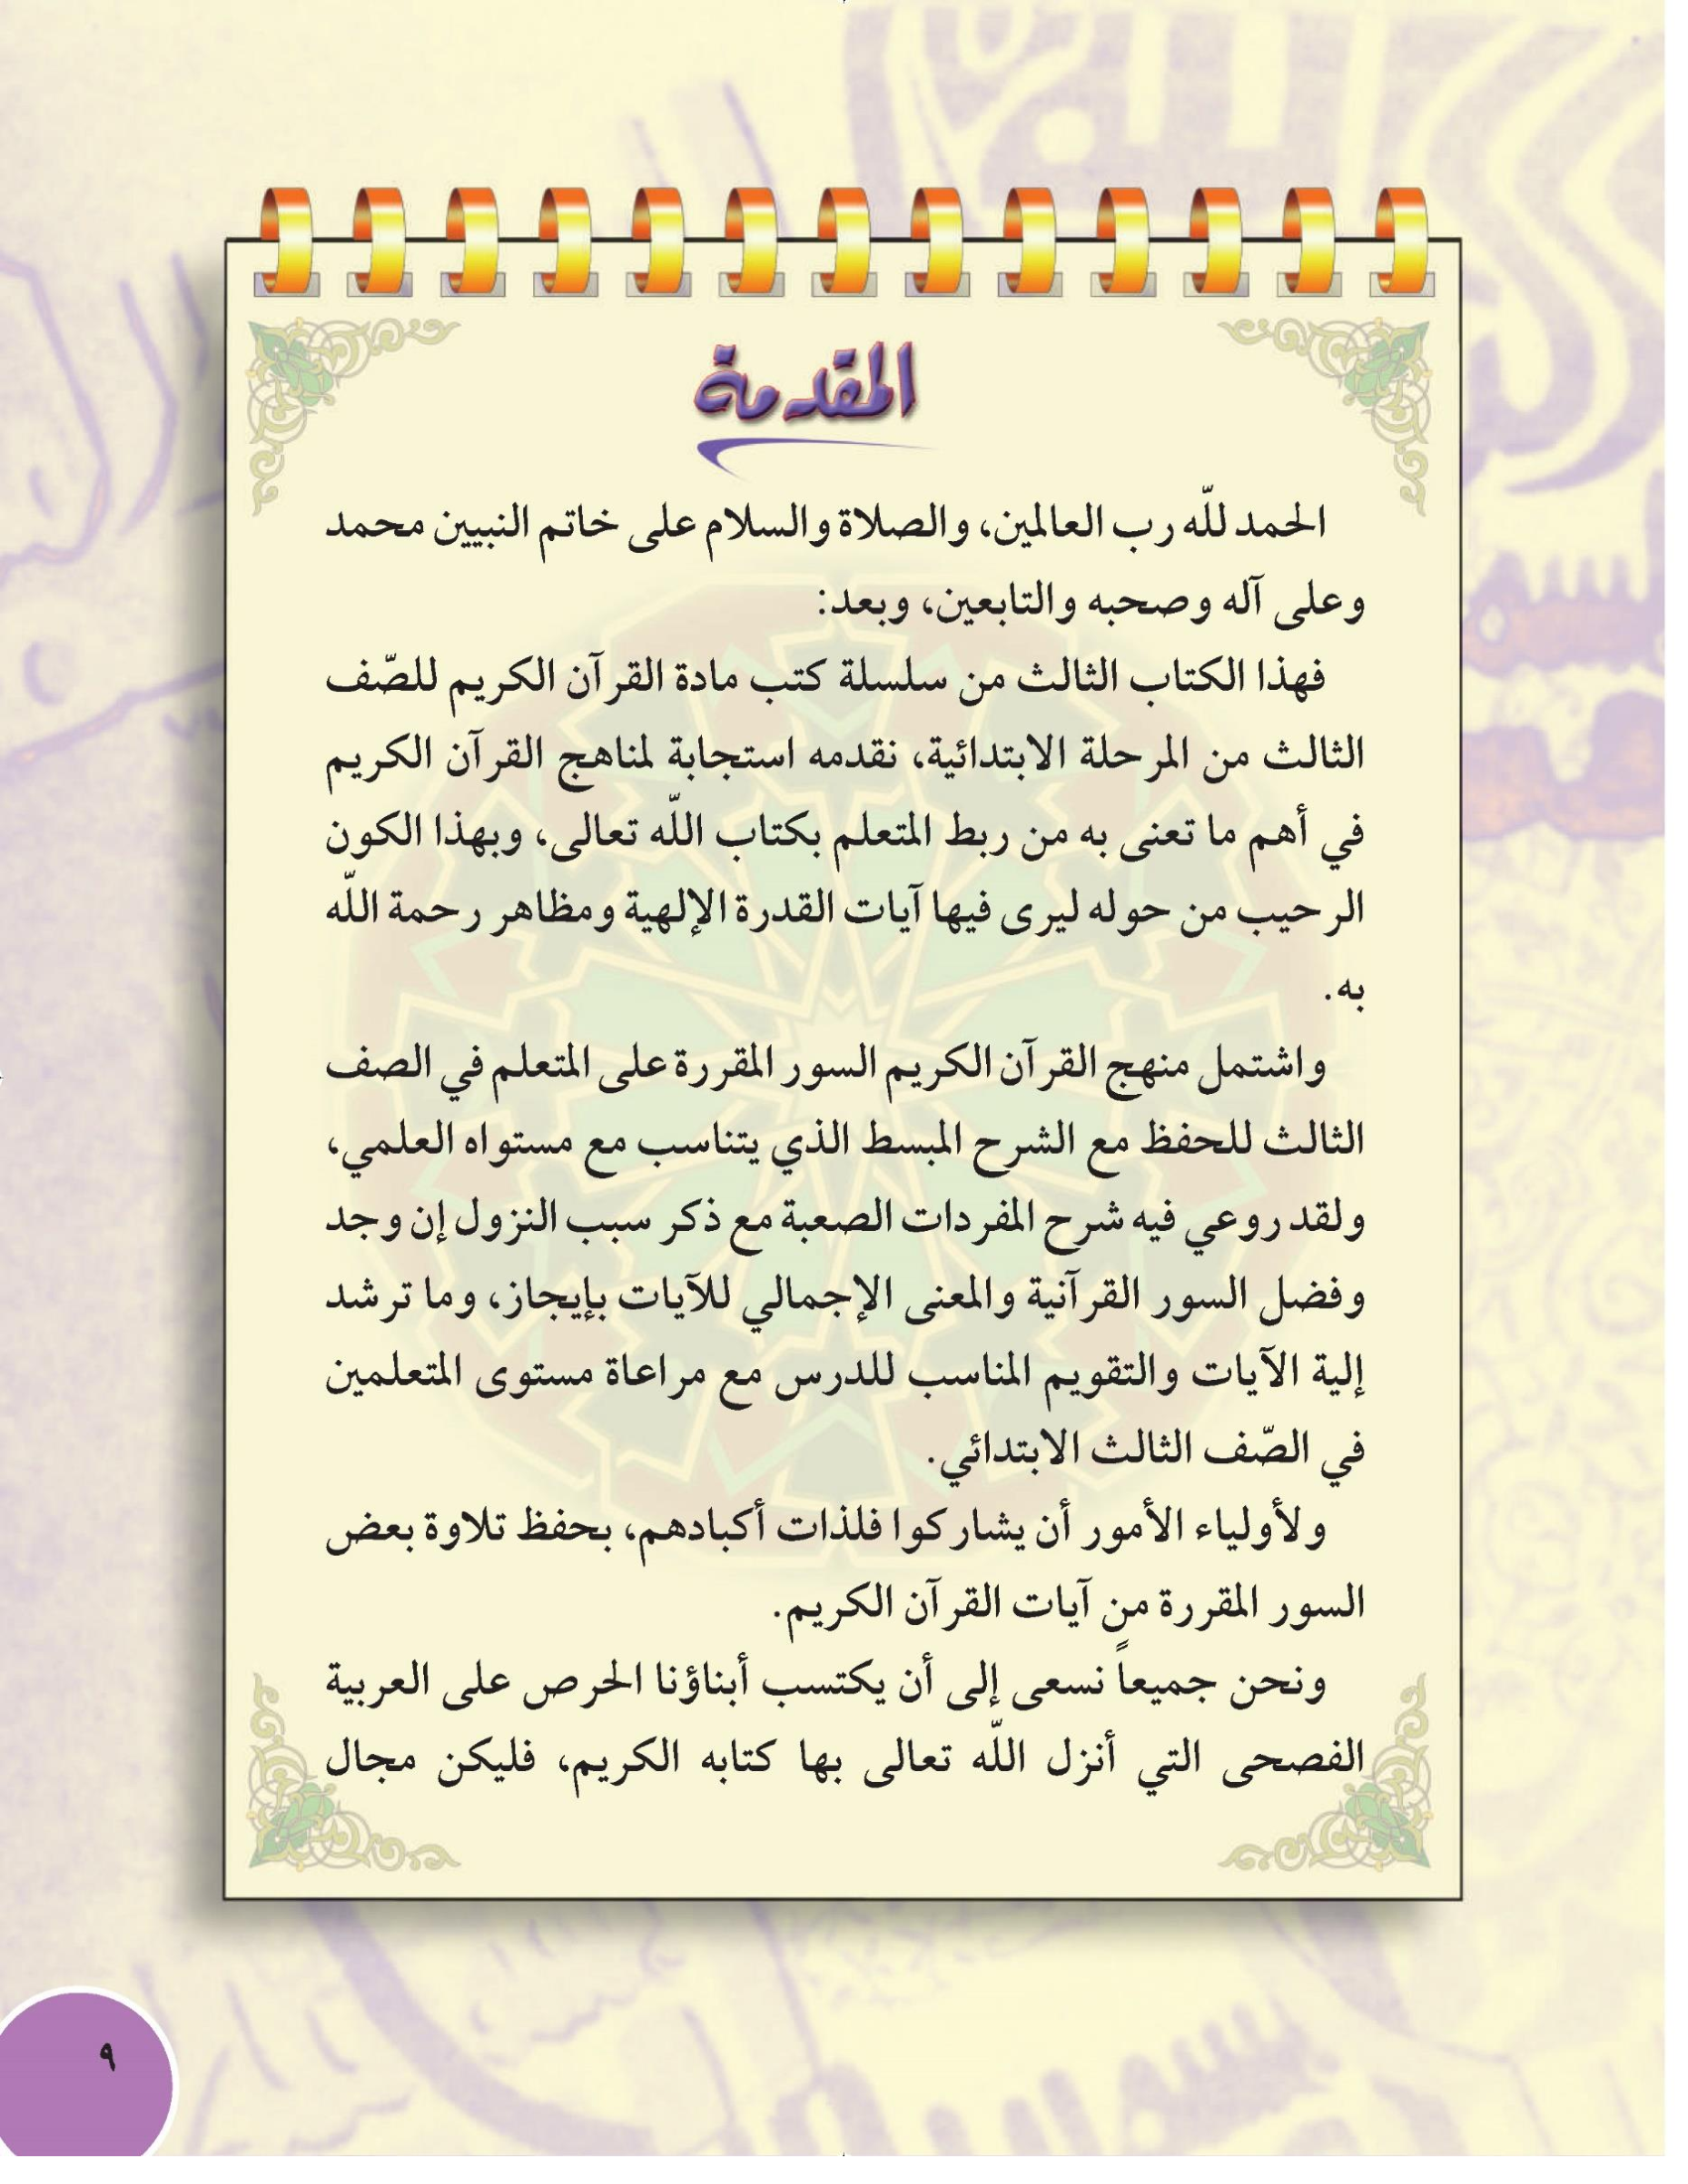 المقدمة
الحمد للّه رب العالمين، والصلاة والسلام على خاتم النبيين محمد
وعلى آله وصحبه والتابعين، وبعد:
فهذا الكتاب الثالث من سلسلة كتب مادة القرآن الكريم للصّف
الثالث من المرحلة الابتدائية، نقدمه استجابة لمناهج القرآن الكريم
في أهم ما تعنى به من ربط المتعلم بكتاب اللّه تعالى، وبهذا الكون
الرحيب من حوله ليرى فيها آيات القدرة الإلهية ومظاهر رحمة اللّه
به.
واشتمل منهج القرآن الكريم السور المقررة على المتعلم في الصف
الثالث للحفظ مع الشرح المبسط الذي يتناسب مع مستواه العلمي،
ولقد روعي فيه شرح المفردات الصعبة مع ذكر سبب النزول إن وجد
وفضل السور القرآنية والمعنى الإجمالي للآيات بإيجاز، وما ترشد
إلية الآيات والتقويم المناسب للدرس مع مراعاة مستوى المتعلمين
في الصّف الثالث الابتدائي.
ولأولياء الأمور أن يشاركوا فلذات أكبادهم، بحفظ تلاوة بعض
السور المقررة من آيات القرآن الكريم.
ونحن جميعاً نسعى إلى أن يكتسب أبناؤنا الحرص على العربية
الفصحى التي أنزل اللّه تعالى بها كتابه الكريم، فليكن مجال
٩